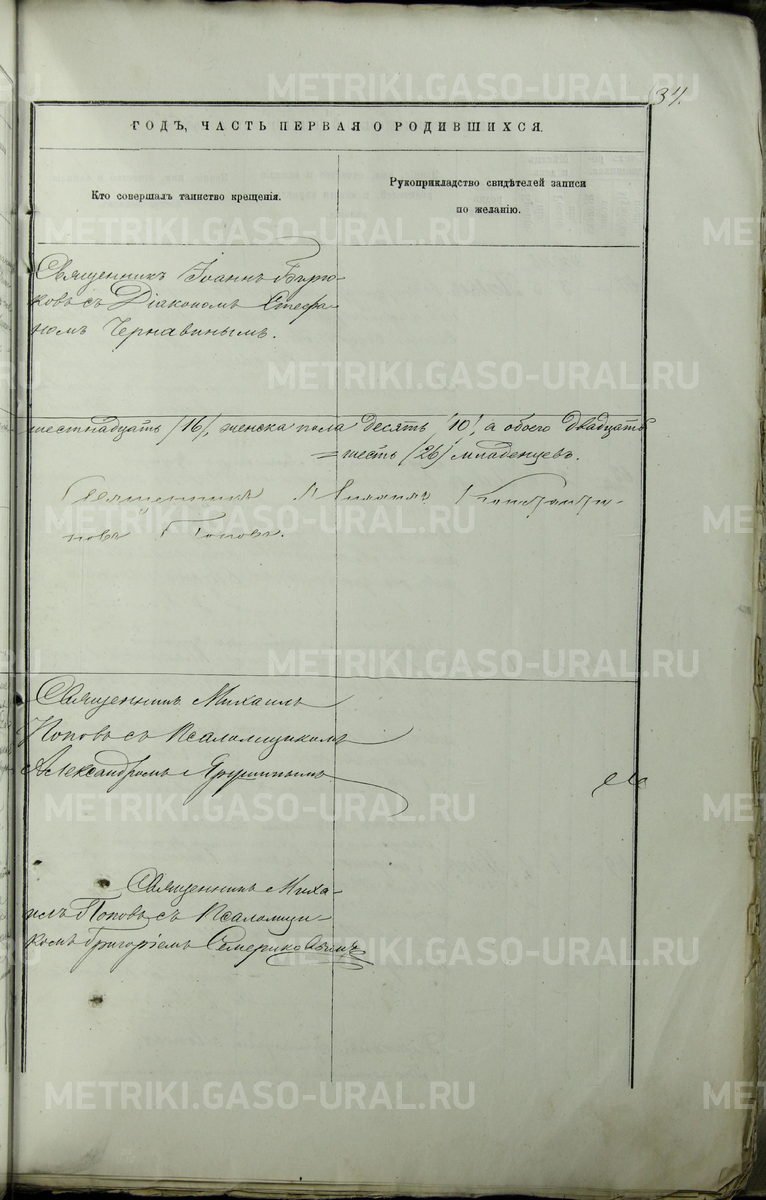 34.
ГОДЪ, ЧАСТЬ ПЕРВАЯ О РОДИВШИХСЯ.
Кто совершалъ таинство крещенія.
Рукоприкладство свидѣтелей записи
по желанію.
Священникъ Іоаннъ Бирю-
ковъ съ Діакономъ Стефа-
номъ Чернавинымъ.
шестнадцать /16/, женска пола десять /10/, а обоего двадцать
=шесть /26/ младенцевъ.
Священникъ Константи-
новъ Поповъ.
Священникъ Михаилъ
Поповъ съ Псаломщикомъ
Александромъ
Священникъ Миха-
илъ Поповъ съ Псаломщи-
комъ Григоріемъ Семериковымъ
METRIKI.GASO-URAL.RU